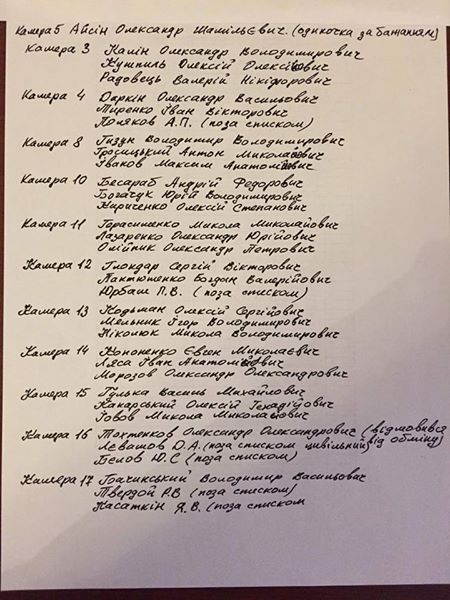 Камера 5 Айсін Олександр ШамільЄвич. (одиночка за бажанням)
Камера 3 Калін Олександр Володимирович
Кушпиль Олексій Олексійович
Радовець Валерій Нікіфорович
Камера 4 Даркін Олександр Васильович
Пиренко Іван Вікторович
Поляков А.П. (поза списком)
Камера 8 Гизун Володимир Володимирович
Гросицький Антон Миколайович
Іванов Максим Анатолійович
Камера 10 Бесараб Андрій Федорович
Богачук Юрій Володимирович
Кириченко Олексій Степанович
Камера 11 Герасименко Микола Миколайович
Лазаренко Олександр Юрійович
Олійник Олександр Петрович
Камера 12 Глондар Сергій Вікторович
Пантюшенко Богдан Валерійович
Юрбаш П.В. (поза списком)
Камера 13 Кодьман Олексій Сергійович
Мельник Ігор Володимирович
Ніколюк Микола Володимирович
Камера 14 Кононенко Євген Миколаєвич
Ляса Іван Анатолійович
Морозов Олександр Олександрович
Камера 15 Гулька Василь Михайлович
Какарський Олексій Генадійович
Говов Микола Миколайович
Камера 16 Тохтенков Олександр Олександрович (відмовився
Левашов О.А. (поза списком цивільний) від обміну)
Бєлов Ю.С (поза списком)
Камера 17 Бачинський Володимир Васильович
Твердой Р.В (поза списком)
Касаткін Я.В. (поза списком